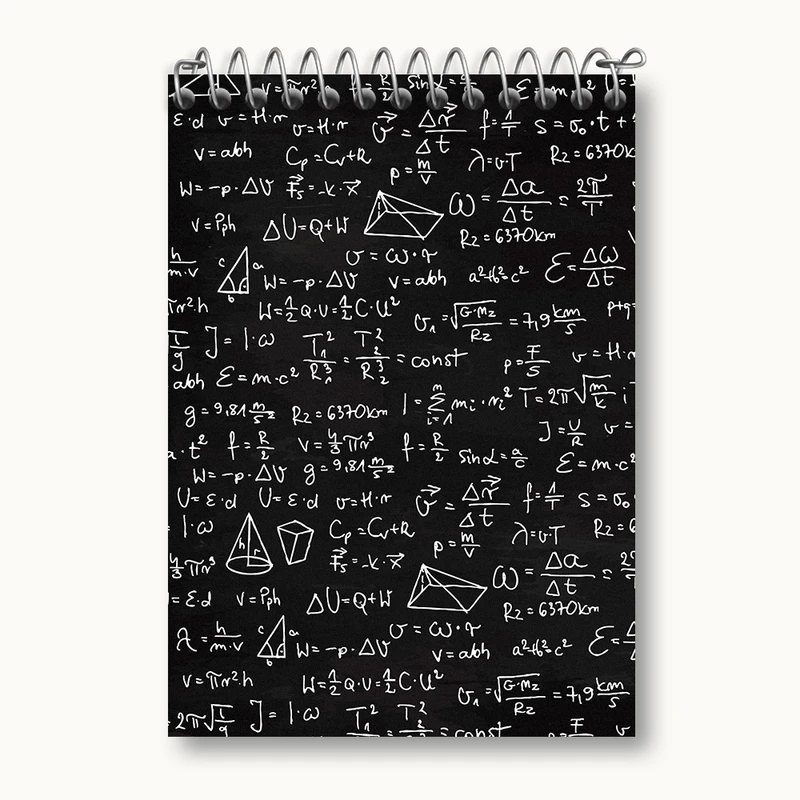 v = πr²
f = R/2
sinα = a/c
ε·d v = H·r v = H·r v⃗ = Δr⃗/Δt f = 1/T s = σ₀·t +
v = abh Cp = Cv+R p = m/V λ = v·T Rz = 6370k
W = -p·ΔV F⃗s = -k·x⃗ ω = Δa/Δt = 2π/T
v = Pph ΔU = Q+W Rz = 6370km
h/m·v c a b v = ω·r
W = -p·ΔV v = abh a²+b²=c² ε = Δω/Δt
πr²·h W = 1/2 Q·U = 1/2 C·U² σ₁ = √(G·Mz/Rz) = 7,9 km/s p+q=
J = I·ω T₁²/R₁³ = T₂²/R₂³ = const p = F/S v = H·r
abh E = m·c² I = n∑i=1 mi·ri² T = 2π√(m/k)
g = 9,81 m/s² Rz = 6370km J = U/R v =
a·t² f = R/2 v = 4/3 πr³ f = R/2 sinα = a/c E = m·c²
W = -p·ΔV g = 9,81 m/s²
U = ε·d U = ε·d v = H·r v⃗ = Δr⃗/Δt f = 1/T s = σ₀
= I·ω h r Cp = Cv+R p = m/V λ = v·T Rz = 6
4/3 πr³ F⃗s = -k·x⃗ ω = Δa/Δt = 2
= ε·d v = Pph ΔU = Q+W Rz = 6370km
λ = h/m·v c a b v = ω·r
W = -p·ΔV v = abh a²+b²=c² ε = Δ
v = πr²·h W = 1/2 Q·U = 1/2 C·U² σ₁ = √(G·Mz/Rz) = 7,9 km/s
= 2π√(l/g) J = I·ω T₁² = T₂² = const F